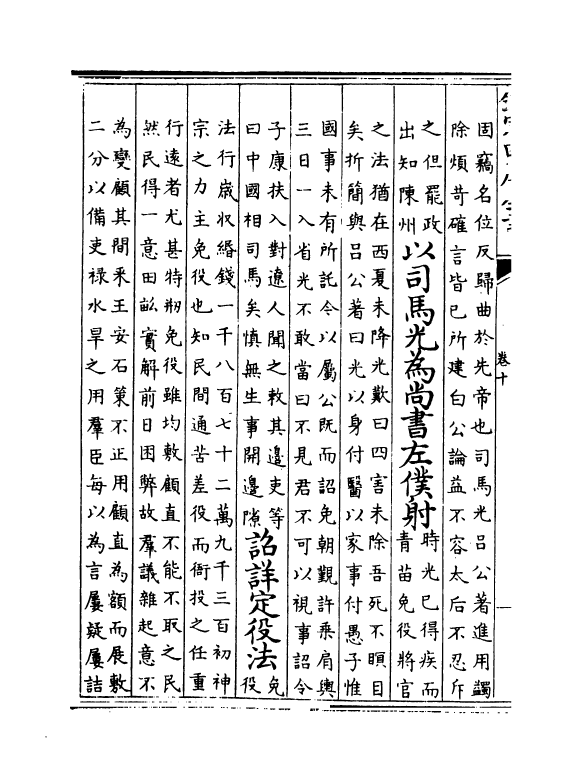 卷十
固竊名位反歸曲於先帝也司馬光呂公著進用蠲
除煩苛確言皆已所建白公論益不容太后不忍斥
之但罷政
出知陳州
以司馬光為尚書左僕射
時光已得疾而
青苗免役將官
之法猶在西夏未降光歎曰四害未除吾死不瞑目
矣折簡與呂公著曰光以身付醫以家事付愚子惟
國事未有所託今以屬公既而詔免朝覲許乘肩輿
三日一入省光不敢當曰不見君不可以視事詔令
子康扶入對遼人聞之敕其邊吏等
曰中國相司馬矣慎無生事開邊隙
詔詳定役法
免
役
法行嵗收緡錢一千八百七十二萬九千三百初神
宗之力主免役也知民間通苦差役而衙投之任重
行逺者尤甚特剏免役雖均敷顧直不能不取之民
然民得一意田畝實解前日困弊故羣議雜起意不
為變顧其間釆王安石策不正用顧直為額而展敷
二分以備吏祿水旱之用羣臣每以為言屢疑屢詰